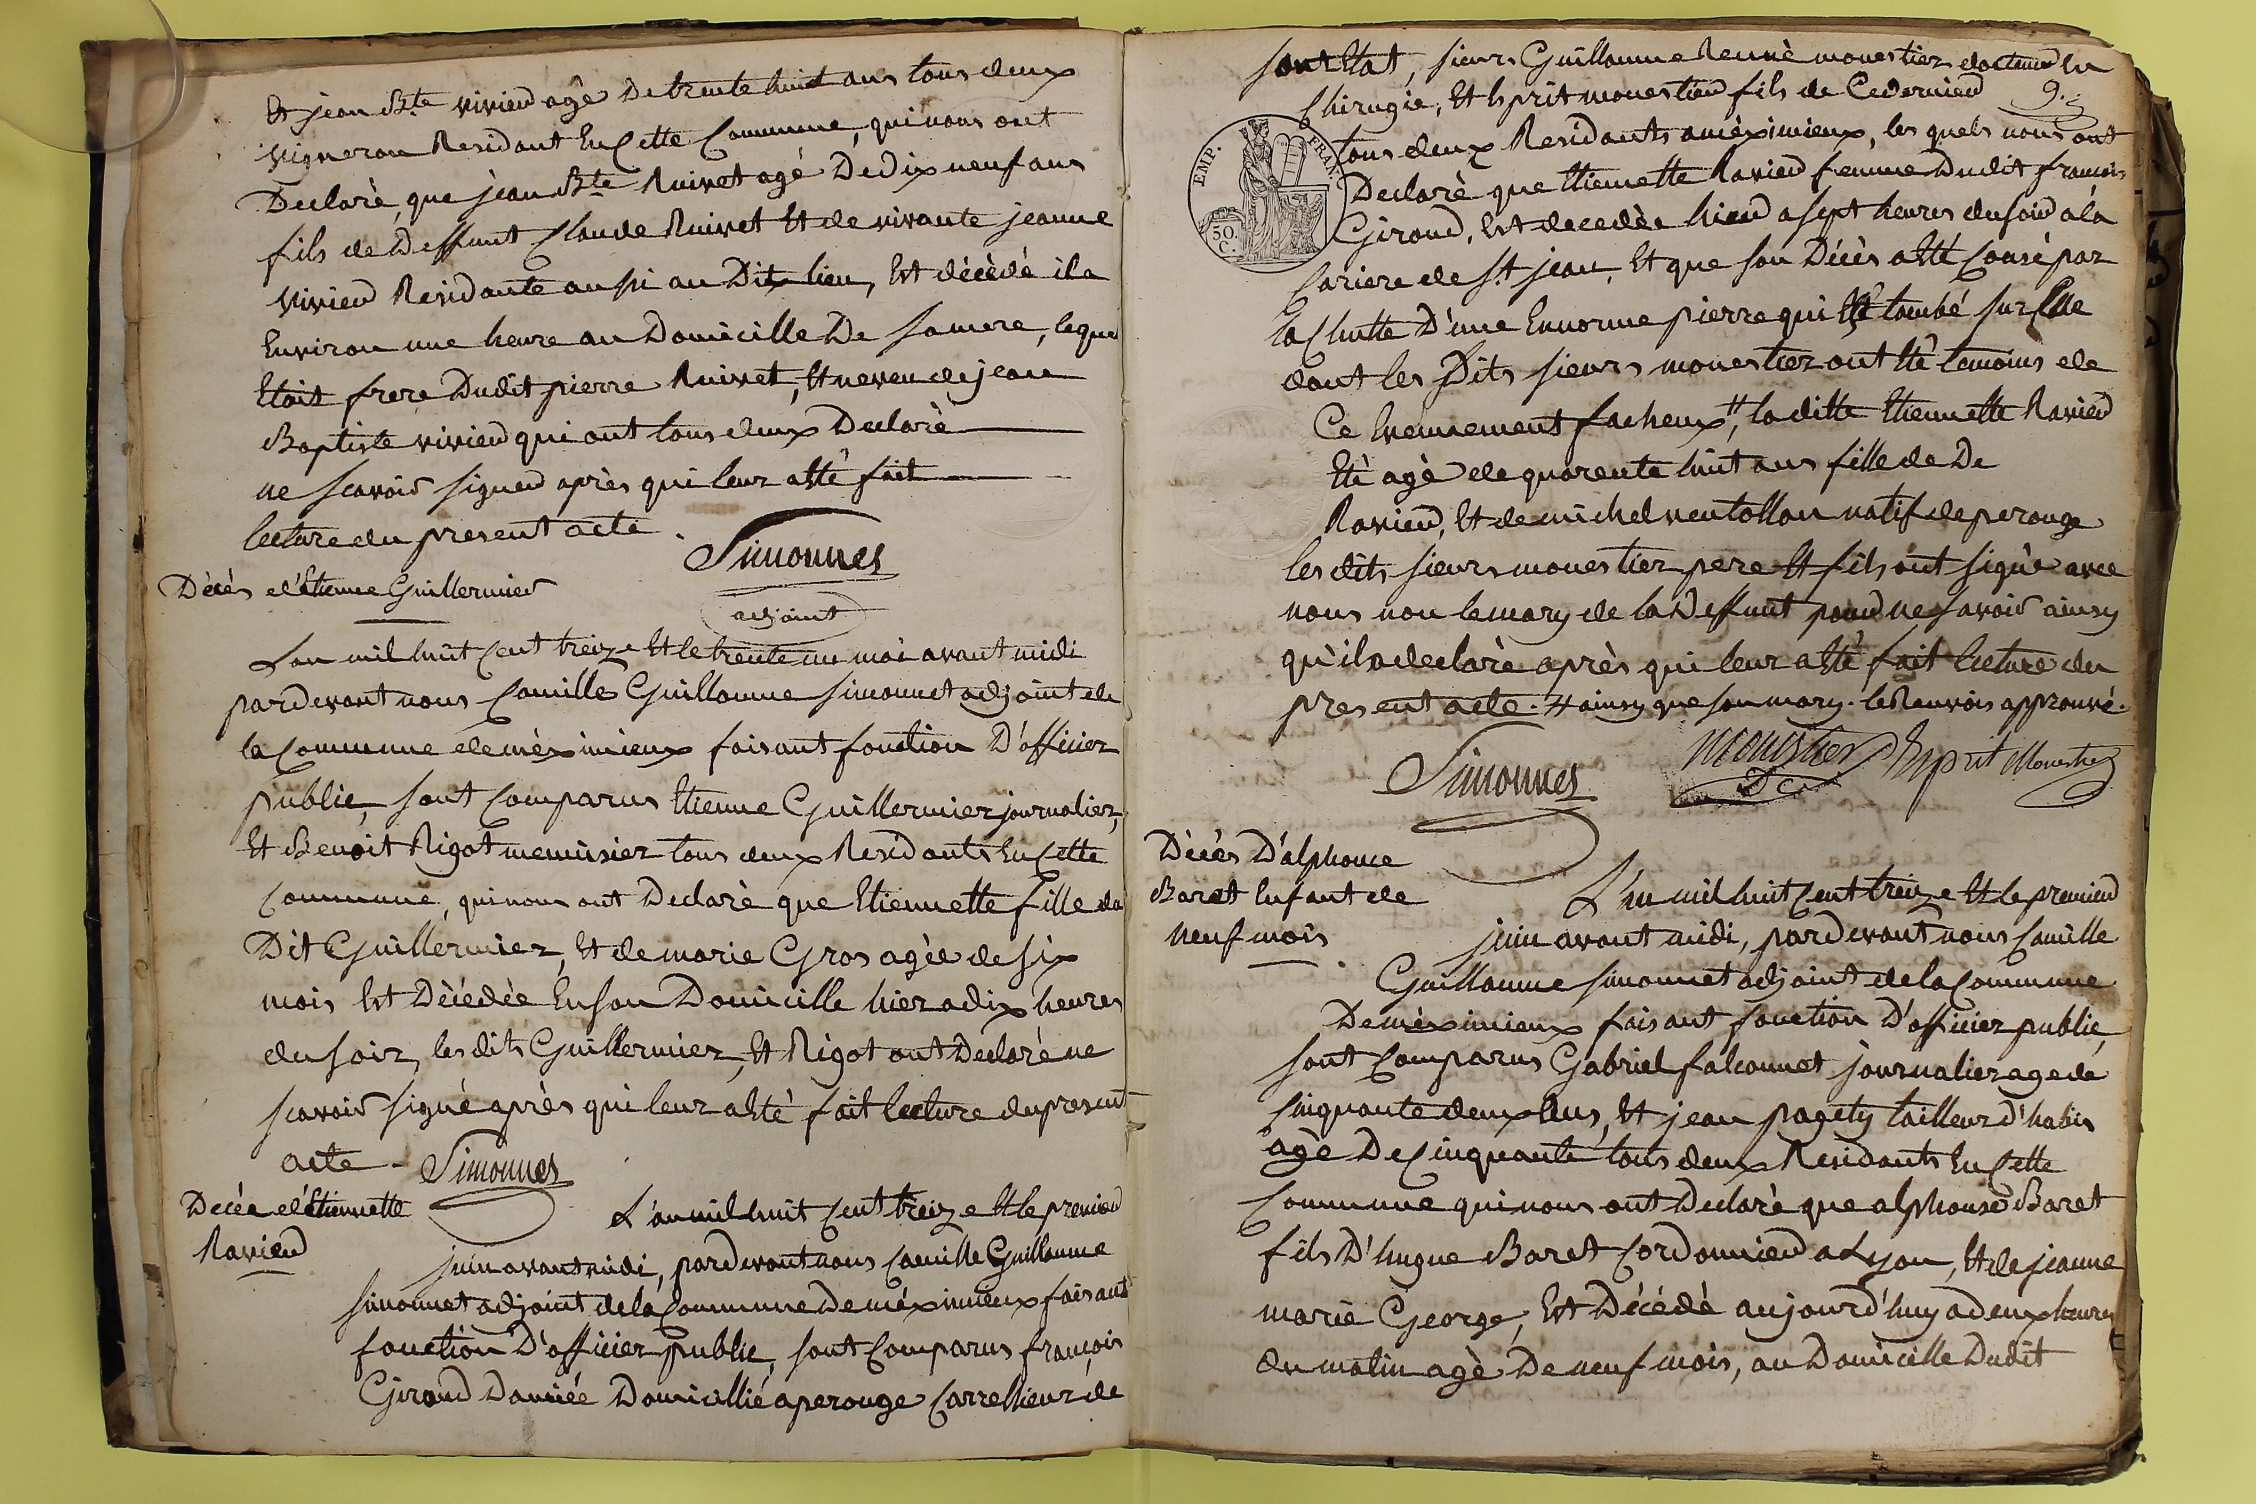 Et jean Bte vivier agè De trente huit ans tous deux
vigneron Residant En Cette Commune, qui nous ont
Declarè, que jean Bte Ruivet agé De dix neuf ans
fils de Deffunt Claude Ruivet Et de vivante jeanne
vivier Residante aussi au Dit lieu, Est dècèdè il a
Environ une heure au Domicille De sa mere, lequel
Etait frere Dudit pierre Ruivet, Et neveu de jean
Baptiste vivier qui ont tous deux Declarè
ne scavoir signer après qui leur a Eté fait
lecture du present acte.
Simonnet
adjoint
Dècès d'Etienne Guillermier
L'an mil huit Cent treize Et le trente un mai avant midi
pardevant nous Camille Guillaume simonnet adjoint de
la Commune de mèximieux faisant fonction D'officier
public, sont Comparus Etienne Guillermier journalier,
Et Benoit Rigot menuisier tous deux Residants En Cette
Commune, qui nous ont Declarè que Etiennette fille du
Dit Guillermier, Et de marie Gros agèe de six
mois Est Dècèdèe En son Domicille hier a dix heures
du soir, les dits Guillermier, Et Rigot ont Declarè ne
scavoir signé après qui leur a Eté fait lecture du present
acte. Simonnet
Dècès d'Etiennette
Ravier
L'an mil huit Cent treize Et le premier
juin avant midi, pardevant nous Camille Guillaume
simonnet adjoint de la Commune De mèximieux faisant
fonction D'officier public, sont Comparus françois
Giroud Domicillié a perouge Carrellieur de
9.
sont Etat, sieurs Guillaume Rennè monestier docteur En
Chirugie, Et Esprit monestier fils de Ce dernier
tous deux Residants a mèximieux, les quels nous ont
Declarè que Etiennette Ravier femme Dudit françois
Giroud, Est decedèe hier a sept heures du soir a la
Cariere de St jean, Et que son Dècès a Eté Causé par
la Chutte D'une Ennorme pierre qui Est tombé sur Elle
dont les Dits sieurs monestier ont Eté temoins de
Ce Evennement facheux #, la ditte Etiennette Ravier
Eté agè de quarente huit ans fille de De
Ravier, Et de michel ventollon natif de perouge
les dits sieurs monestier pere Et fils ont signè avec
nous non le mary de la Deffunt pour ne savoir ainsy
qu'il a declarè après qui leur a Eté fait lecture du
present acte. # ainsy que son mary. le Renvois approuvé.
EMP. FRAN.
50.
C.
Simonnet Monestier Esprit Monestier
DC
Dècès D'alphonce
Baret Enfant de
neuf mois
L'an mil huit Cent treize Et le premier
juin avant midi, pardevant nous Camille
Guillaume simonnet adjoint de la Commune
De mèximieux faisant fonction D'officier public,
sont Comparus Gabriel falconnet journalier age de
Cinquante deux Ans, Et jean pagety tailleur d'habis
agè De Cinquante tous deux Residants En Cette
Commune qui nous ont Declarè que alphonse Baret
fils D'hugue Baret Cordonnier a Lyon, Et de jeanne
marie George, Est Dècèdè aujourd'huy a deux heures
du matin agè De neuf mois, au Domicille Dudit